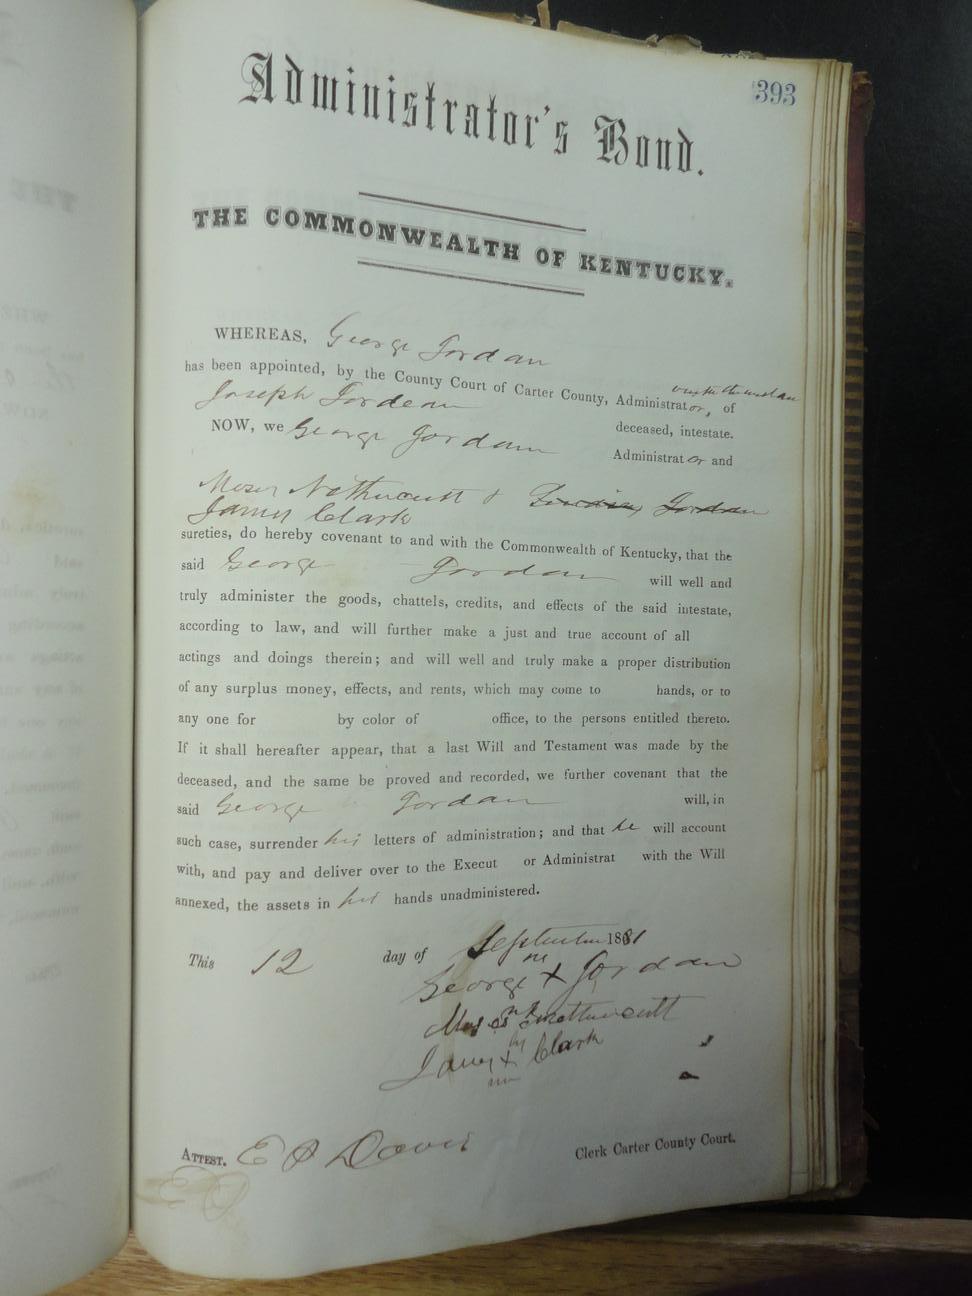 393
Administrator's Bond.
THE COMMONWEALTH OF KENTUCKY.
WHEREAS, George Jordan
has been appointed, by the County Court of Carter County, Administrator, of
Joseph Jordean deceased, intestate.
NOW, we George Jordan Administrator and
Moses & Jordan
James Clark
sureties, do hereby covenant to and with the Commonwealth of Kentucky, that the
said George Jordan will well and
truly administer the goods, chattels, credits, and effects of the said intestate,
according to law, and will further make a just and true account of all
actings and doings therein; and will well and truly make a proper distribution
of any surplus money, effects, and rents, which may come to hands, or to
any one for by color of office, to the persons entitled thereto.
If it shall hereafter appear, that a last Will and Testament was made by the
deceased, and the same be proved and recorded, we further covenant that the
said George Jordan will, in
such case, surrender his letters of administration; and that he will account
with, and pay and deliver over to the Execut or Administrat with the Will
annexed, the assets in his hands unadministered.
This 12 day of September 1881
George X Jordan
Moses
James X Clark
ATTEST. Davis Clerk Carter County Court.